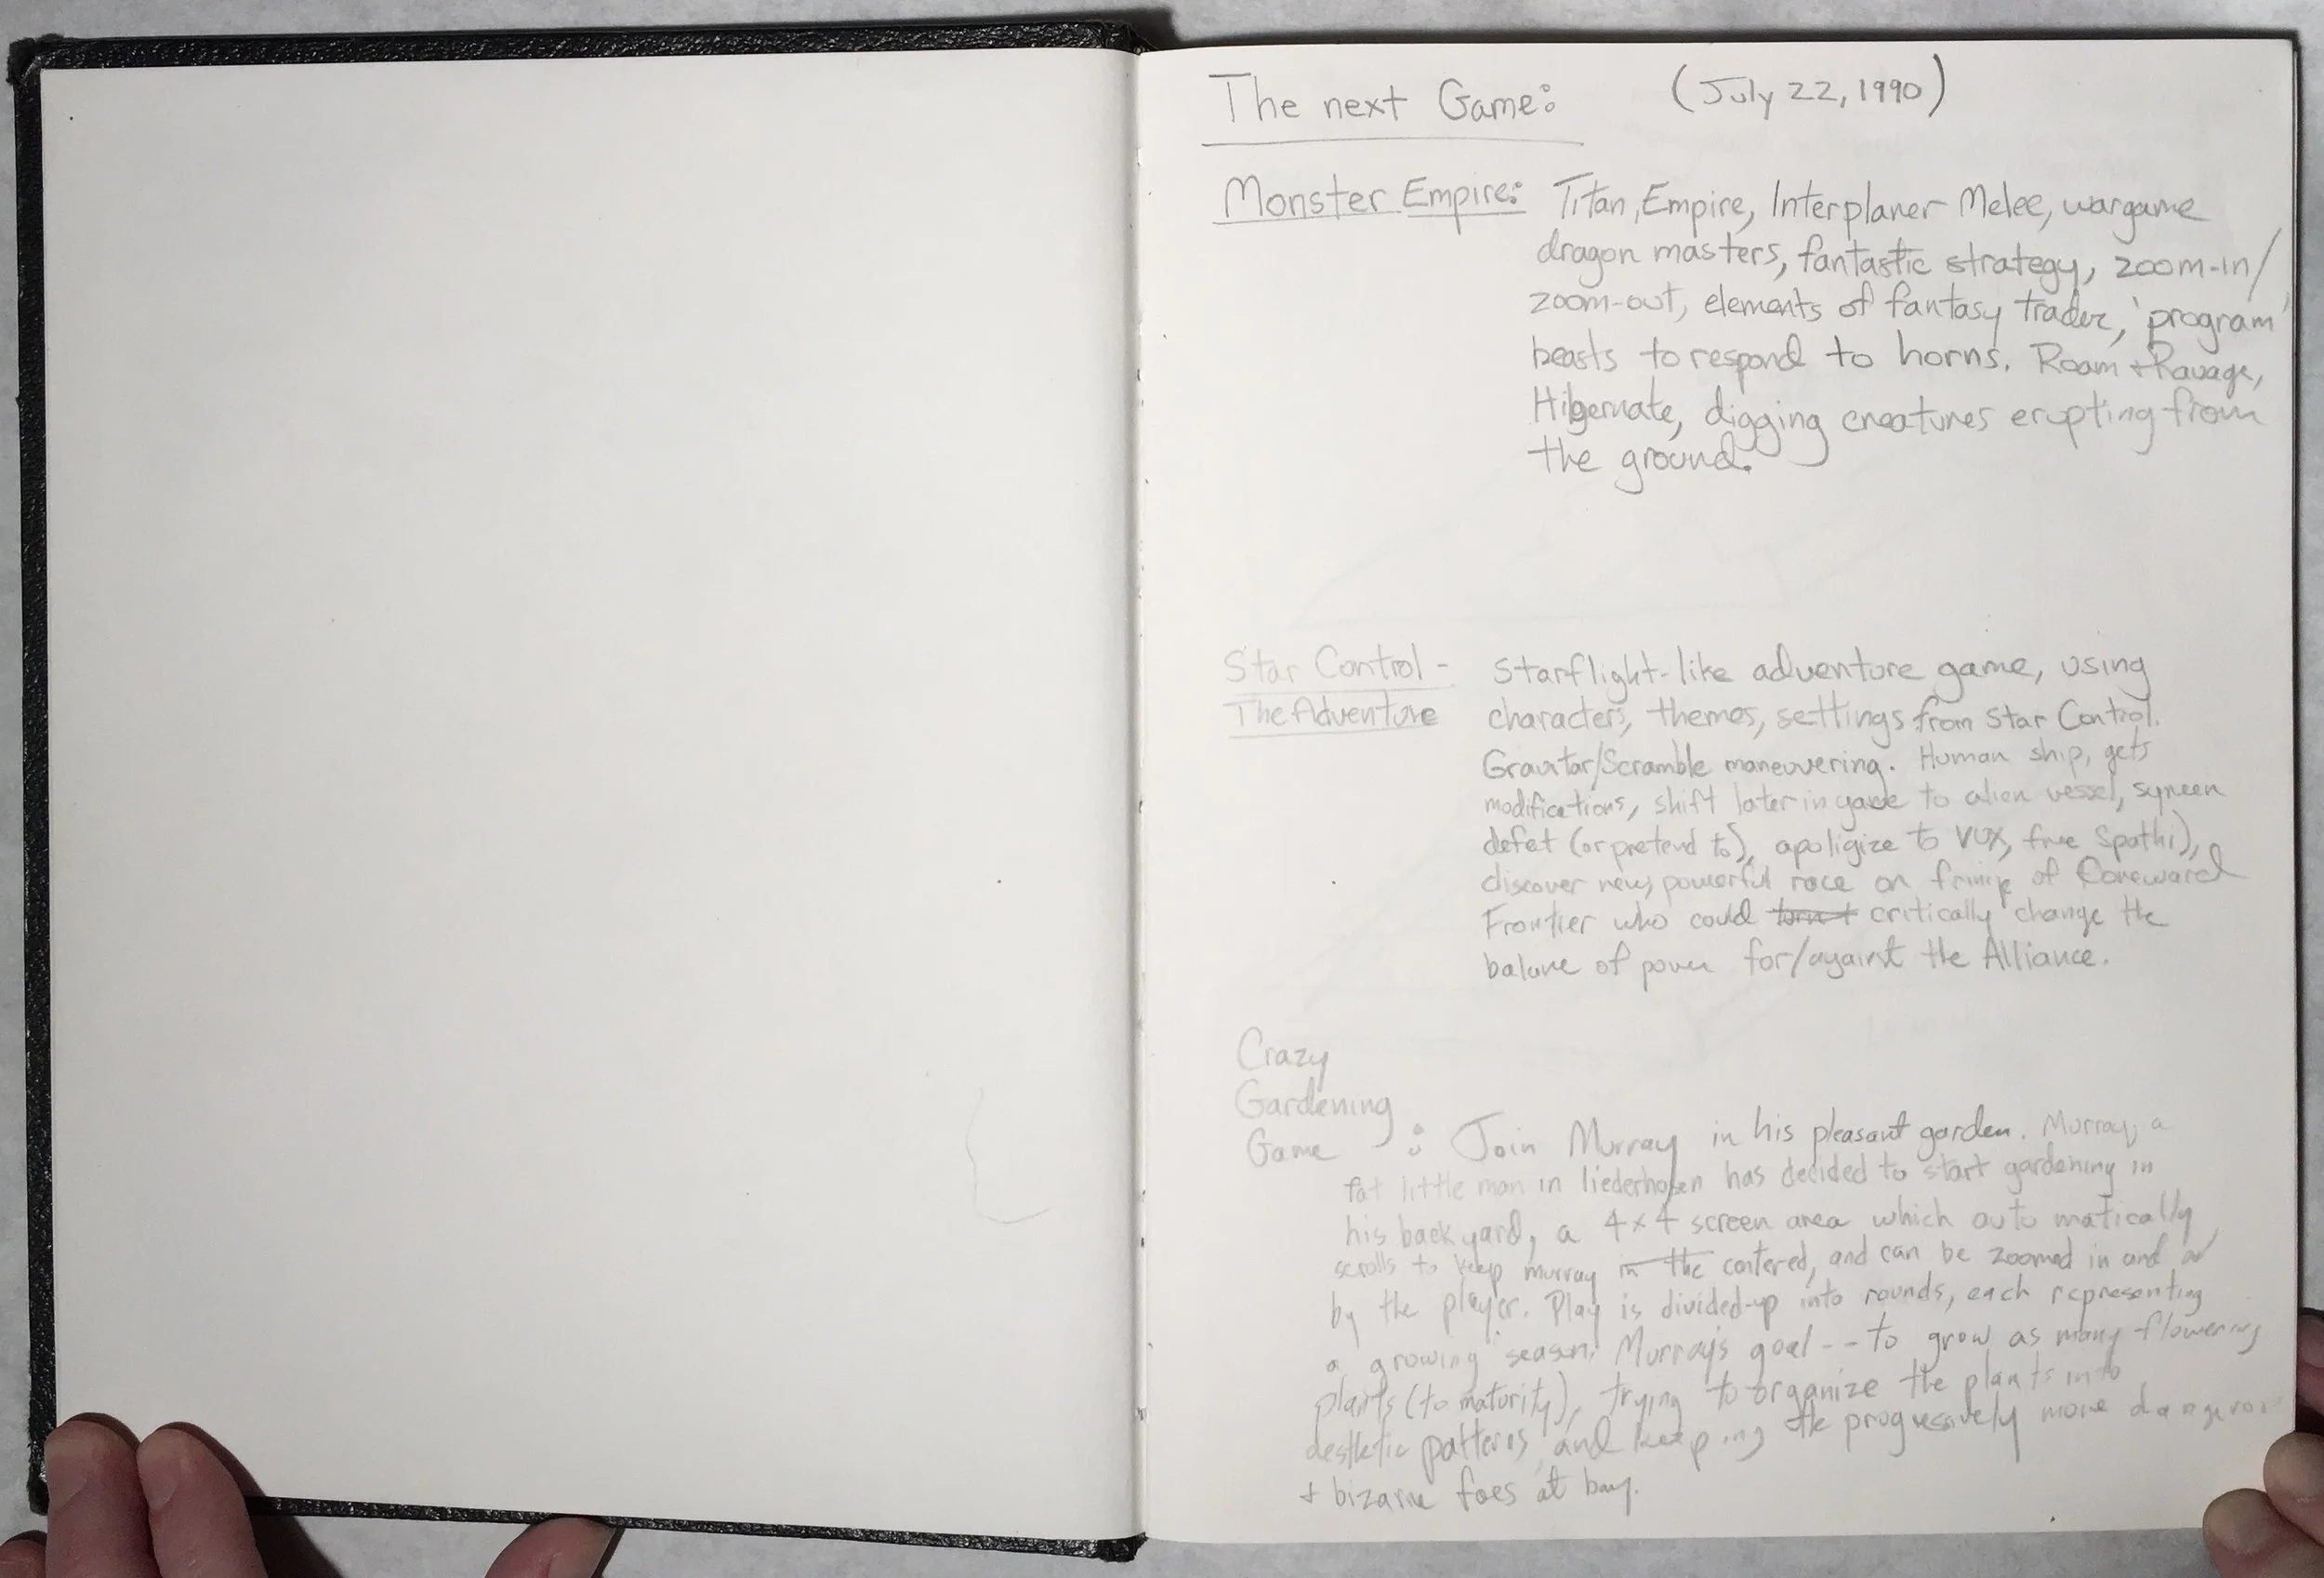 The next Game: (July 22, 1990)
Monster Empire: Titan, Empire, Interplaner Melee, wargame
dragon masters, fantastic strategy, zoom-in/
zoom-out, elements of fantasy trader, 'program'
beasts to respond to horns. Roam + Ravage,
Hibernate, digging creatures erupting from
the ground.
Star Control -
The Adventure
Starflight-like adventure game, using
characters, themes, settings from Star Control.
Gravitar/Scramble maneuvering. Human ship, gets
modifications, shift later in game to alien vessel, syreen
defet (or pretend to), apoligize to VUX, free Spathi),
discover new, powerful race on fringe of Coreward
Frontier who could critically change the
balance of power for/against the Alliance.
Crazy
Gardening
Game : Join Murray in his pleasant garden. Murray, a
fat little man in liederhosen has decided to start gardening in
his back yard, a 4x4 screen area which automatically
scrolls to keep murray in the centered, and can be zoomed in and
by the player. Play is divided-up into rounds, each representing
a growing season. Murray's goal -- to grow as many flowering
plants (to maturity), trying to organize the plants into
aesthetic patterns, and keeping the progressively more dangerous
+ bizarre foes at bay.